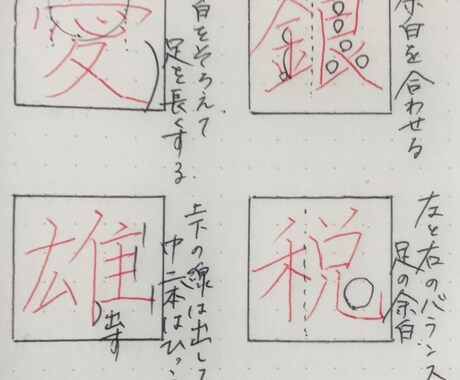 銀
余白を合わせる
愛
白をそろえて
足を長くする
税
左と右のバランス
足の余白
雄
上下の線は出して
中二本はひっこ
出す